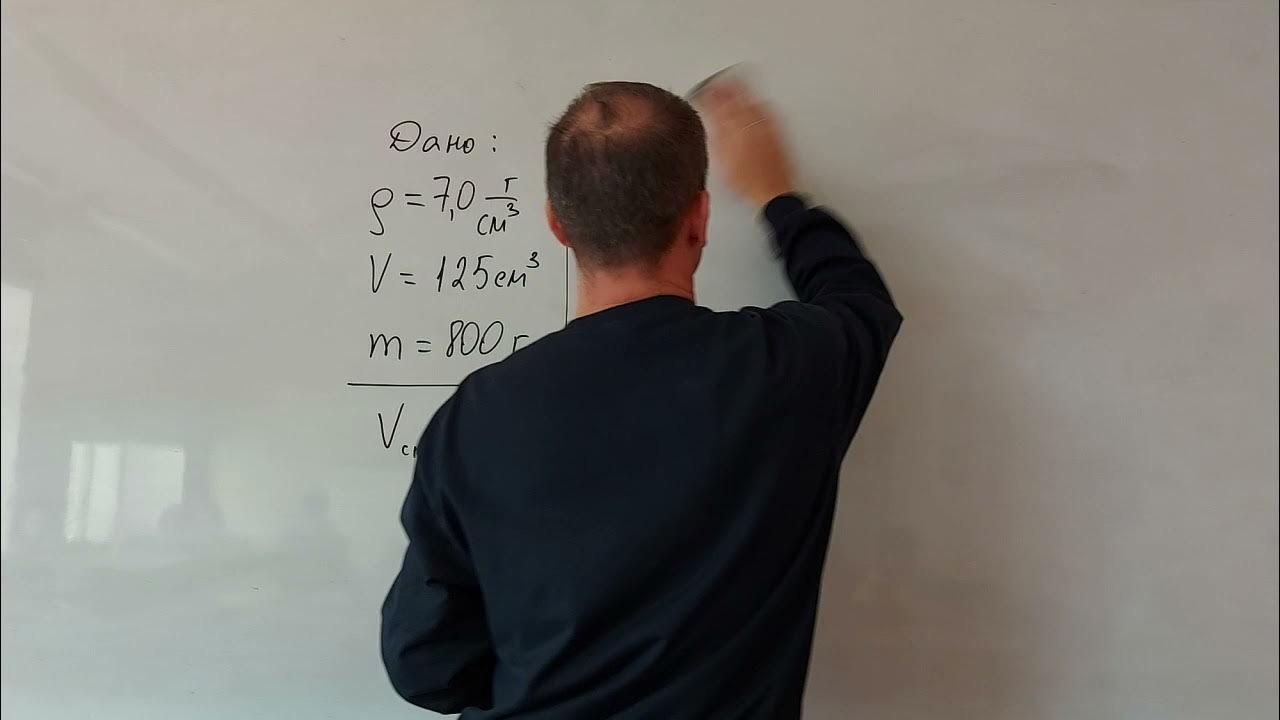 Дано:
ρ = 7,0 г/см³
V = 125 см³
m = 800 г
V